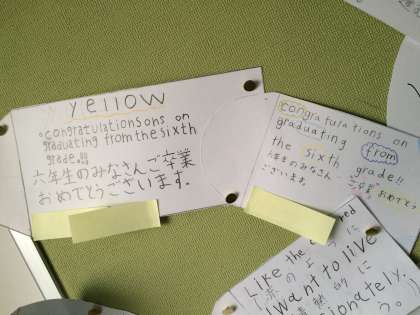 yellow
congratulationsons on
graduating from the sixth
grade!!!
六年生のみなさんご卒業
おめでとうございます.
congratulations on
graduating from
the sixth grade!!
六年生のみなさん ご卒業 おめでとう
ございます。
Like the red
want to live
に
sionately.